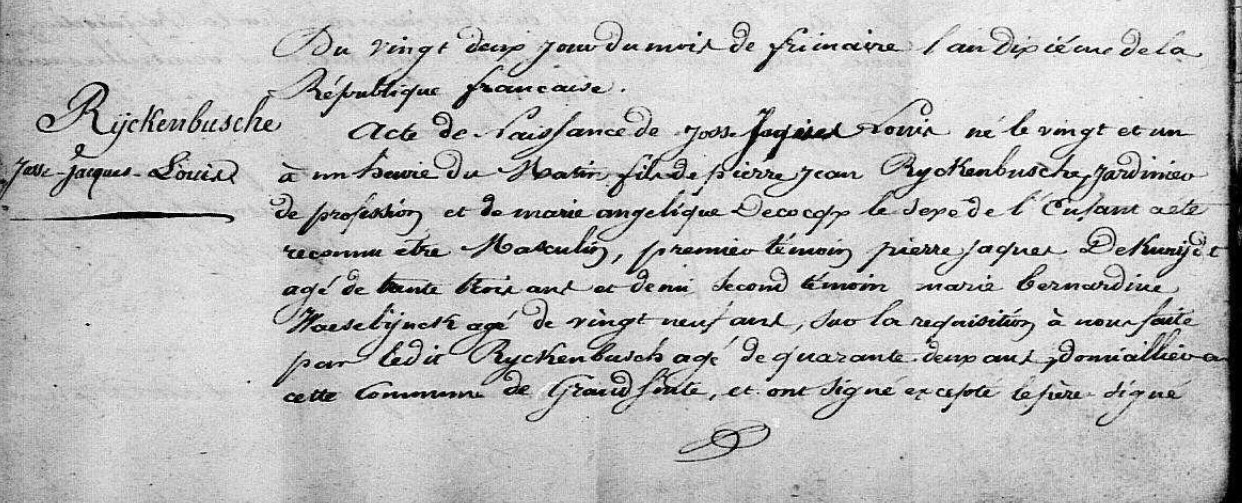 Du vingt deux jour du mois de frimaire l'an dixiéme de la
République francaise.
Ryckenbusche
Josse-Jacques-Louis
Acte de Naissance de Josse Jaques Louis né le vingt et un
à un heure du Matin fils de pierre jean Ryckenbusche, jardinier
de profession et de marie angelique Decocqx le sexe de l'Enfant a eté
reconnu etre Masculin, premier témoin pierre jaques DeKunijdt
agé de trente trois ans et demi second témoin marie bernardine
Waesebijnck agé de vingt neuf ans, sur la requisition à nous faite
par ledit Ryckenbusch agé de quarante-deux ans, domicillier a
cette Commune de Grandsinte, et ont signé excepté le père signé